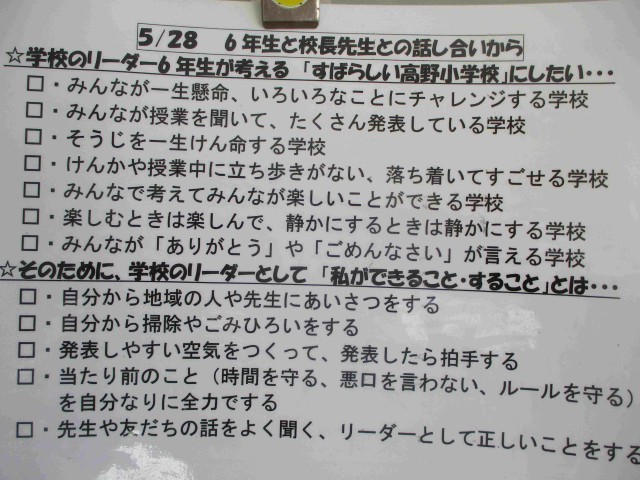 5/28 6年生と校長先生との話し合いから
☆学校のリーダー6年生が考える「すばらしい高野小学校」にしたい・・・
□・みんなが一生懸命、いろいろなことにチャレンジする学校
□・みんなが授業を聞いて、たくさん発表している学校
□・そうじを一生けん命する学校
□・けんかや授業中に立ち歩きがない、落ち着いてすごせる学校
□・みんなで考えてみんなが楽しいことができる学校
□・楽しむときは楽しんで、静かにするときは静かにする学校
□・みんなが「ありがとう」や「ごめんなさい」が言える学校
☆そのために、学校のリーダーとして「私ができること・すること」とは・・・
□・自分から地域の人や先生にあいさつをする
□・自分から掃除やごみひろいをする
□・発表しやすい空気をつくって、発表したら拍手する
□・当たり前のこと(時間を守る、悪口を言わない、ルールを守る)
を自分なりに全力でする
□・先生や友だちの話をよく聞く、リーダーとして正しいことをする